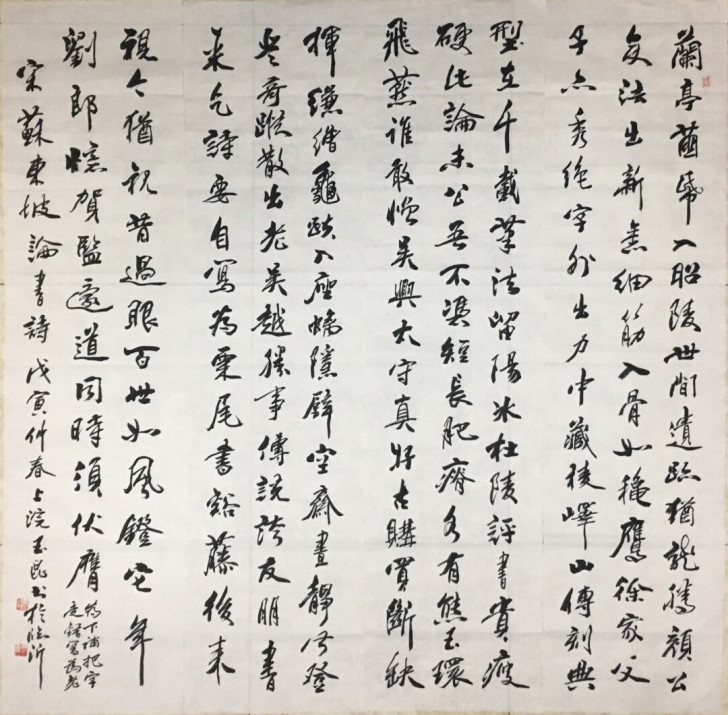 蘭亭繭帋入昭陵世間遺跡猶龍騰顏公
變法出新意細筋入骨如穐鷹徐家父
子亦秀絕字外出力中藏稜嶧山傳刻典
型在千載筆法留陽冰杜陵評書貴瘦
硬此論未公吾不憑短長肥瘠各有態玉環
飛燕誰敢憎吳興太守真好古購買斷缺
揮縑繒龜趺入座螭隱壁空齋晝靜聞登
登奇蹤散出老吳越勝事傳說誇友朋書
來乞詩要自寫為栗尾書谿藤後來
視今猶視昔過眼百世如風鐙它年
劉郎憶賀監還道同時須伏膺
為下補把字
走錯寫為老
宋蘇東坡論書詩戊寅仲春上浣玉昆書於臨沂